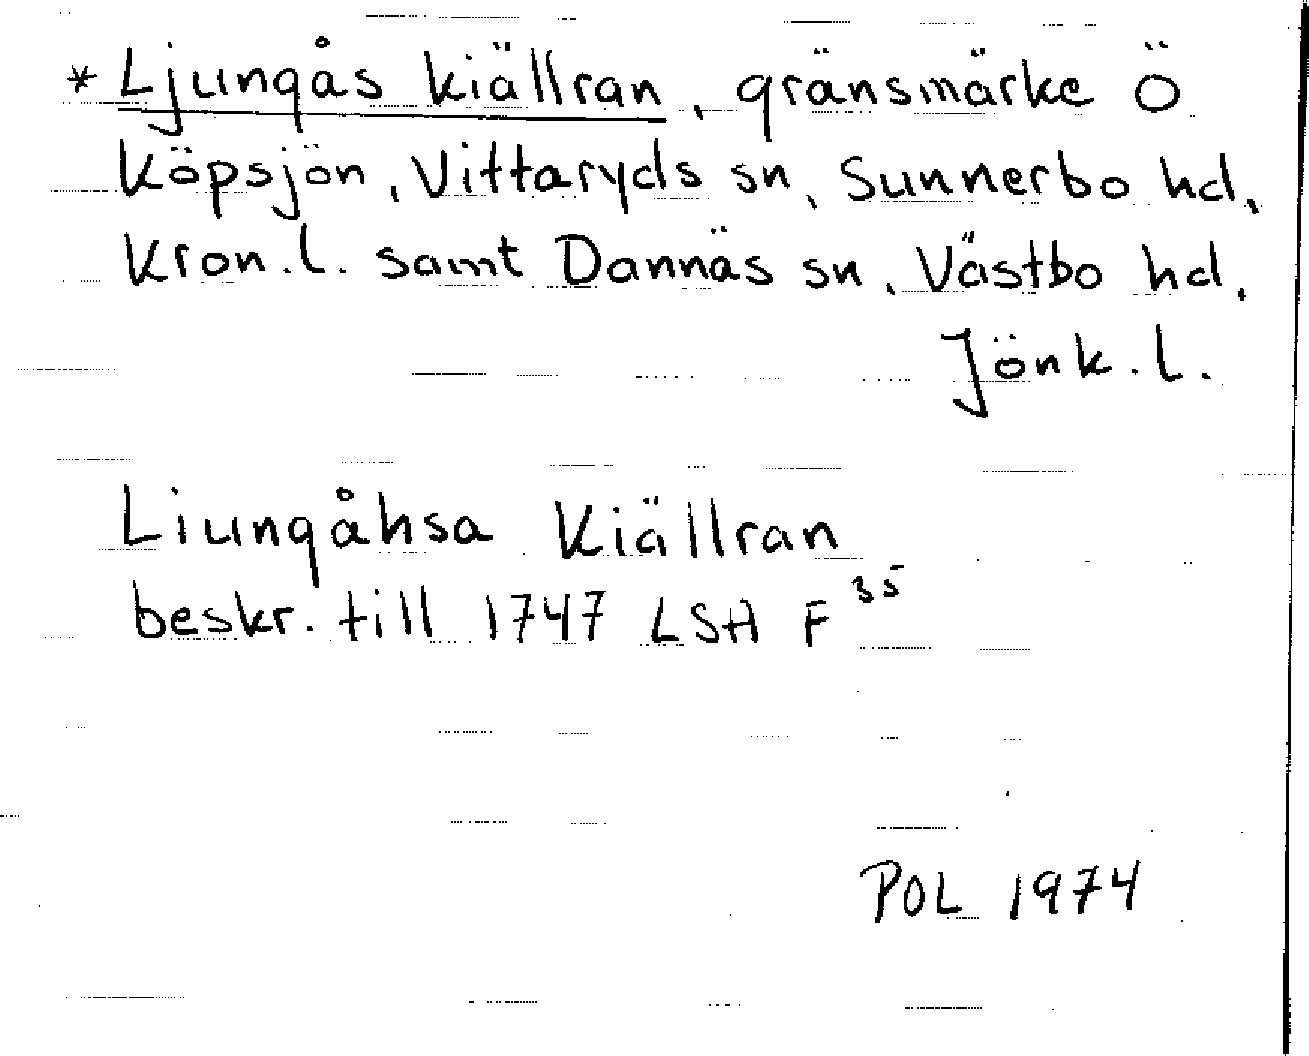 * Ljungås kiällran, gränsmärke Ö
Köpsjön, Vittaryds sn, Sunnerbo hd,
Kron.l. samt Dannäs sn, Västbo hd,
Jönk.l.
Liungåhsa Kiällran
beskr. till 1747 LSA F 35
POL 1974